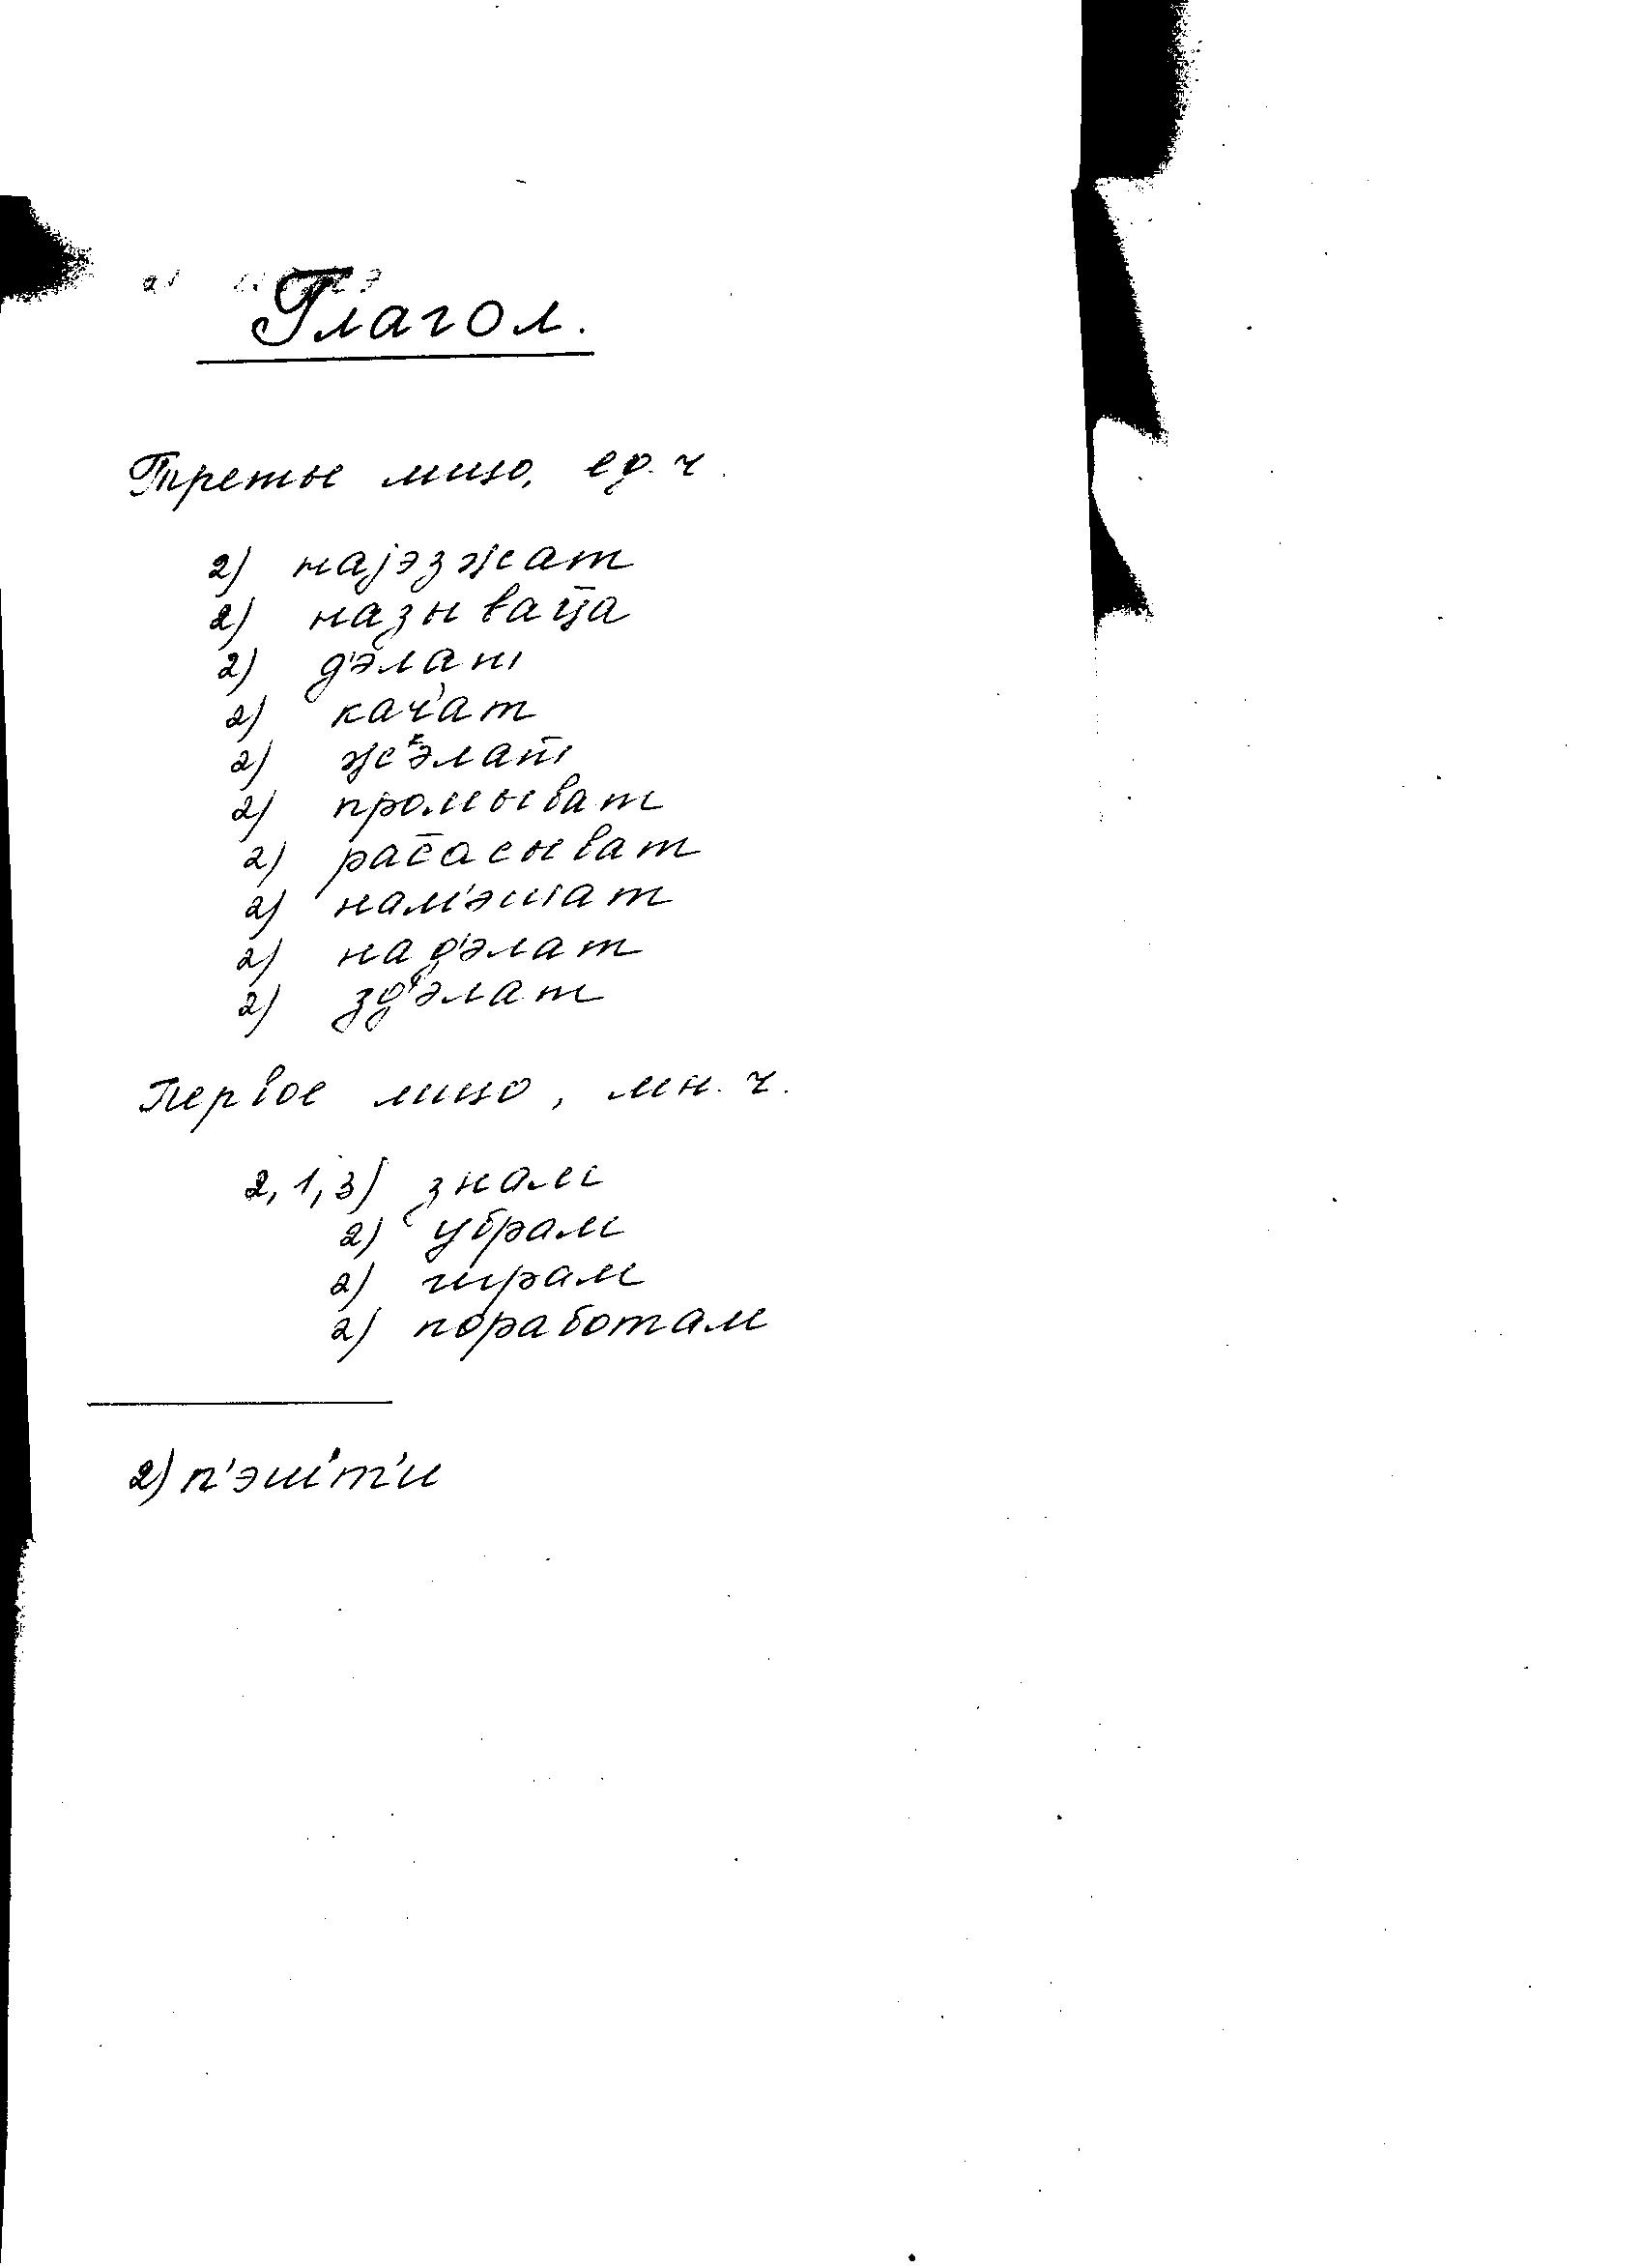 Глагол.
Третье лицо, ед. ч.
2) најэзжат
2) называца̄
2) д'элат
2) кач'ат
2) жэлат
2) промыват
2) рас̄асыват
2) нам'эшат
2) над'элат
2) зд'элат
Первое лицо, мн. ч.
2, 1, 3) знам
2) убрам
2) играм
2) поработам
2) п'эш'т'и